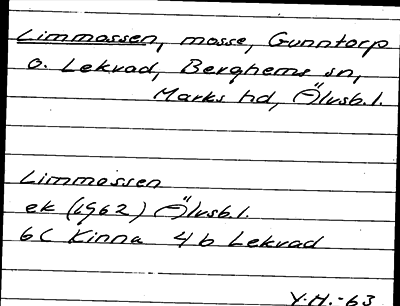 Limmossen, mosse, Gunntorp
o. Lekvad, Berghems sn,
Marks hd, Älvsb.l.
Limmossen
ek (1962) Älvsb.l.
6C Kinna 4b Lekvad
Y.H.-63